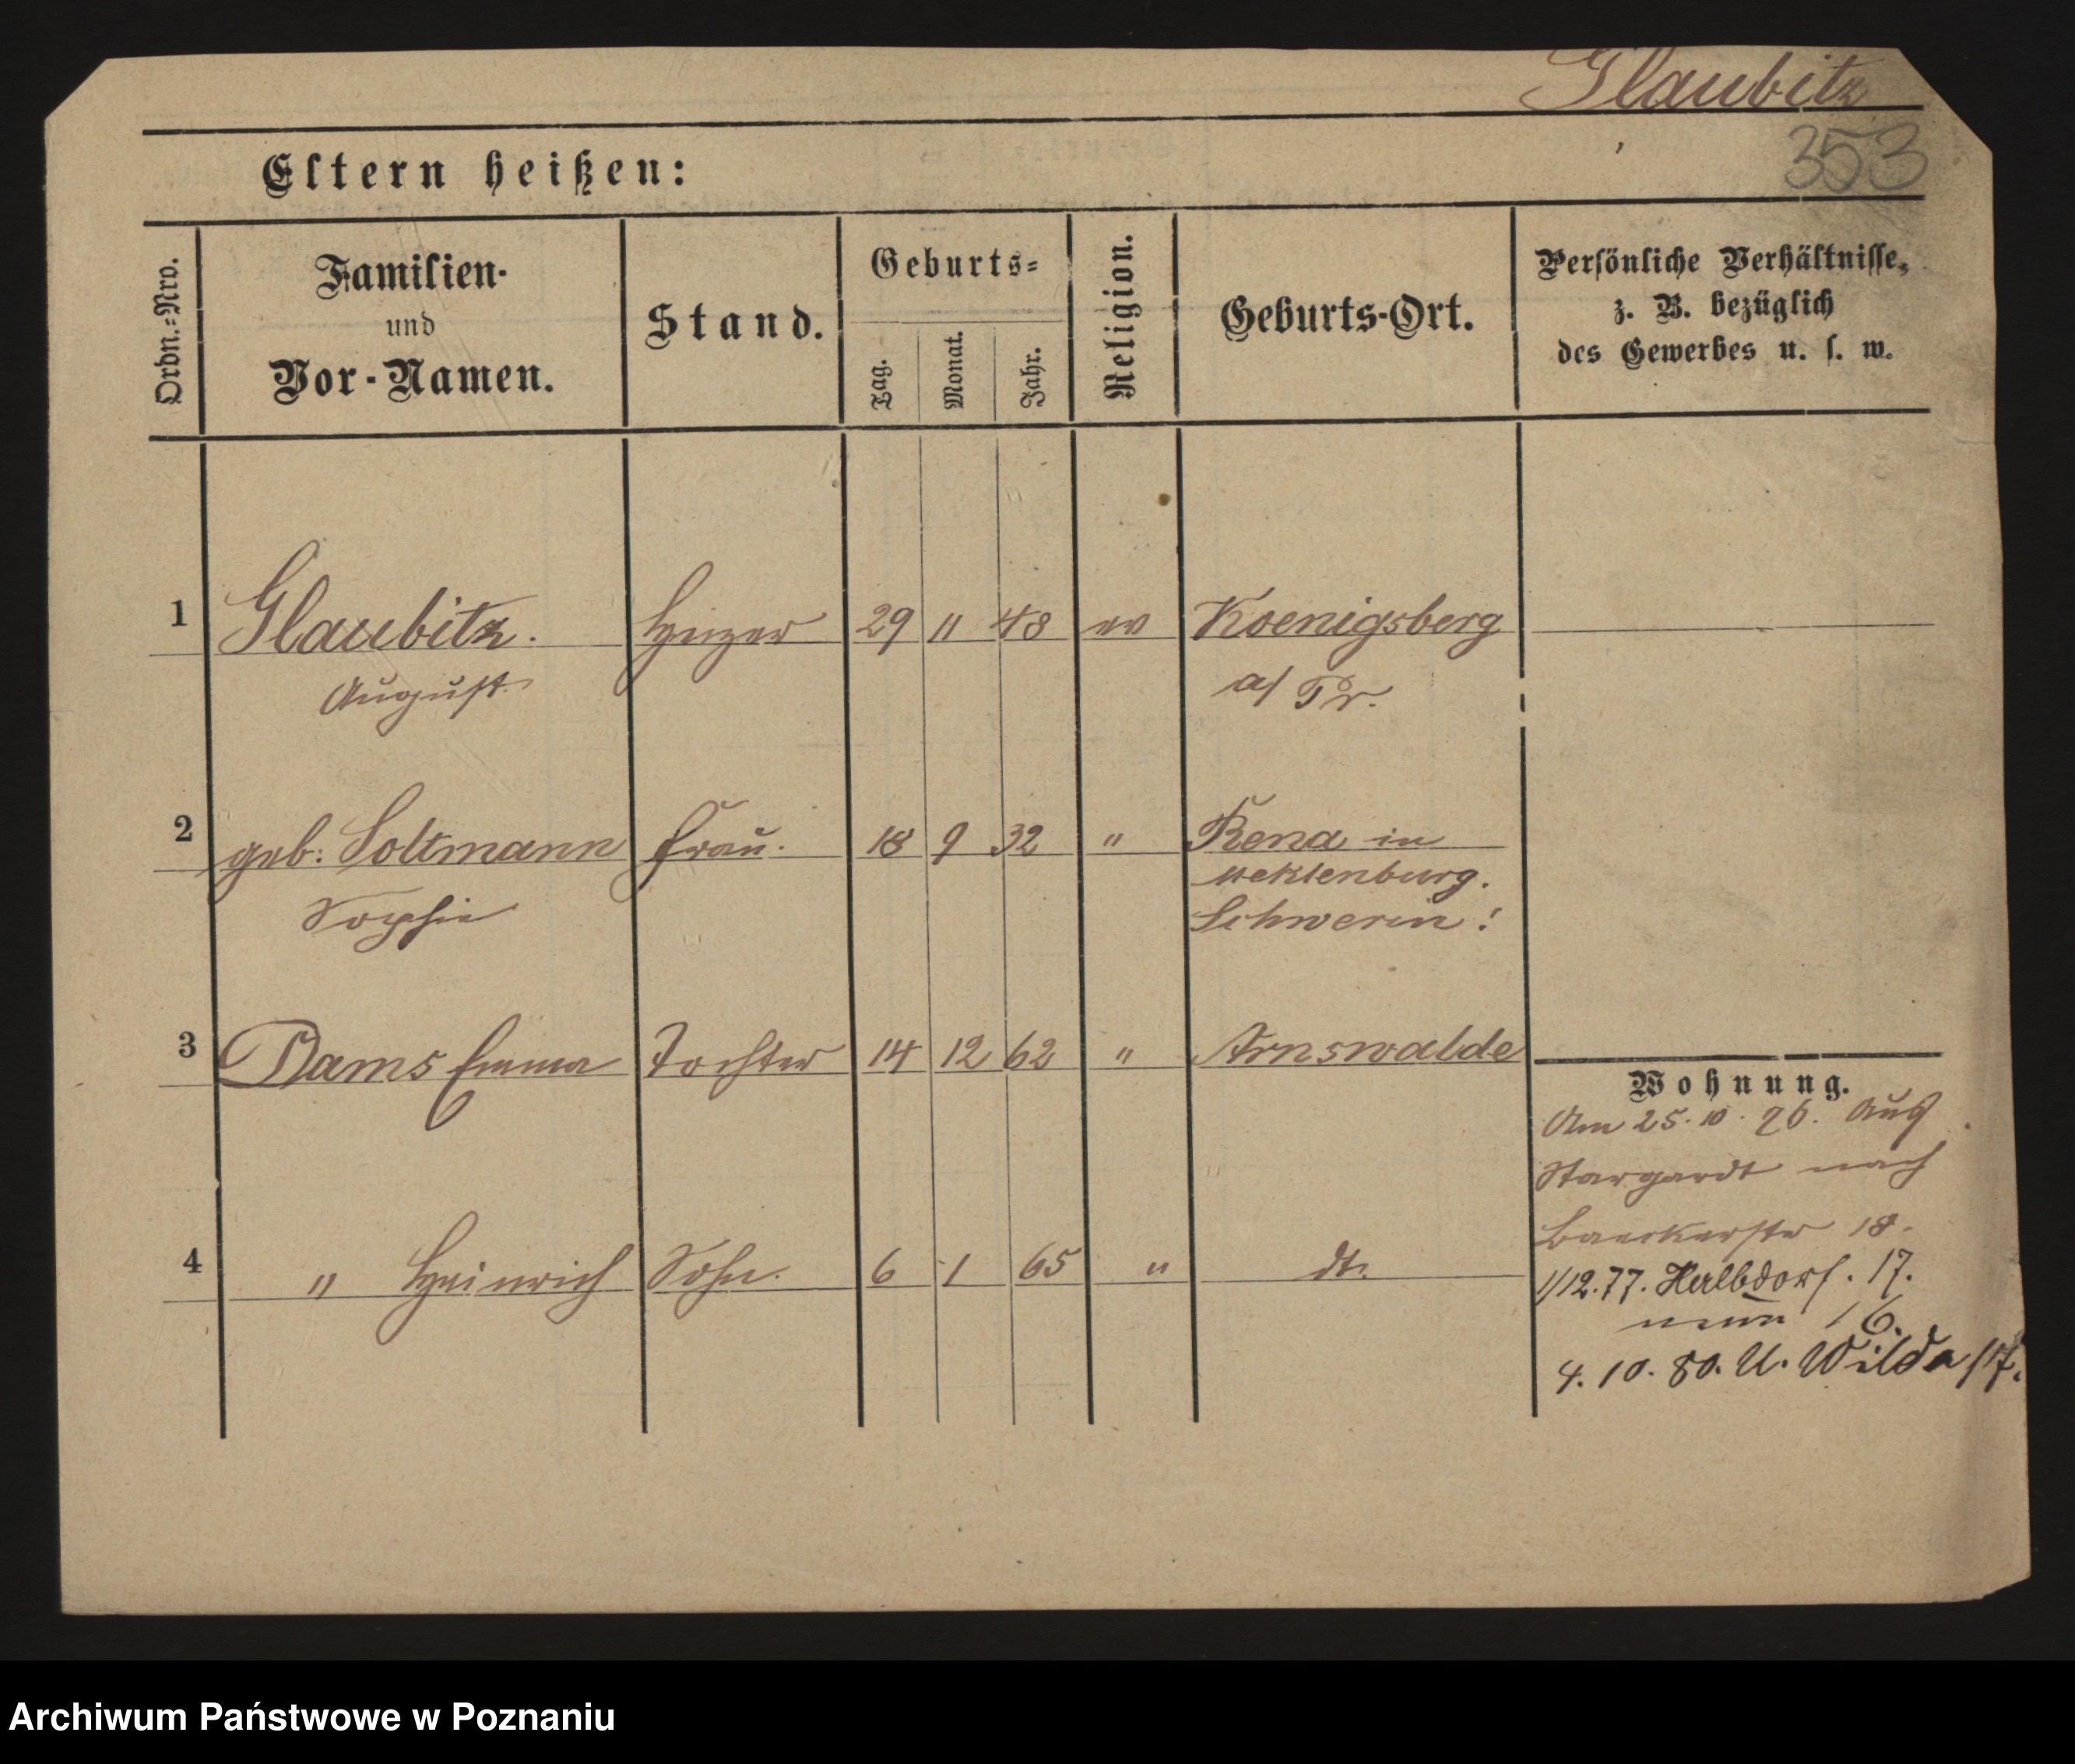 Glaubitz
353
Eltern heißen:
Ordn.-Nro.
Familien-
und
Vor-Namen.
Stand.
Geburts-
Tag.
Monat.
Jahr.
Religion.
Geburts-Ort.
Persönliche Verhältnisse,
z. B. bezüglich
des Gewerbes u. s. w.
1 Glaubitz. Heizer 29 11 48 ev Koenigsberg
August a/ Pr.
2 geb: Soltmann Frau. 18 9 32 " Rena in
Meklenburg.
Sophie Schwerin!
3 Dams Emma Tochter 14 12 62 " Arnswalde
4 " Heinrich Sohn. 6 1 65 " dto.
Wohnung.
Am 25. 10. 76. Aus
Stargardt nach
Baeckerstr 18.
1/12.77. Halbdorf. 17.
16.
4. 10. 80. U. Wilda 17.
Archiwum Państwowe w Poznaniu